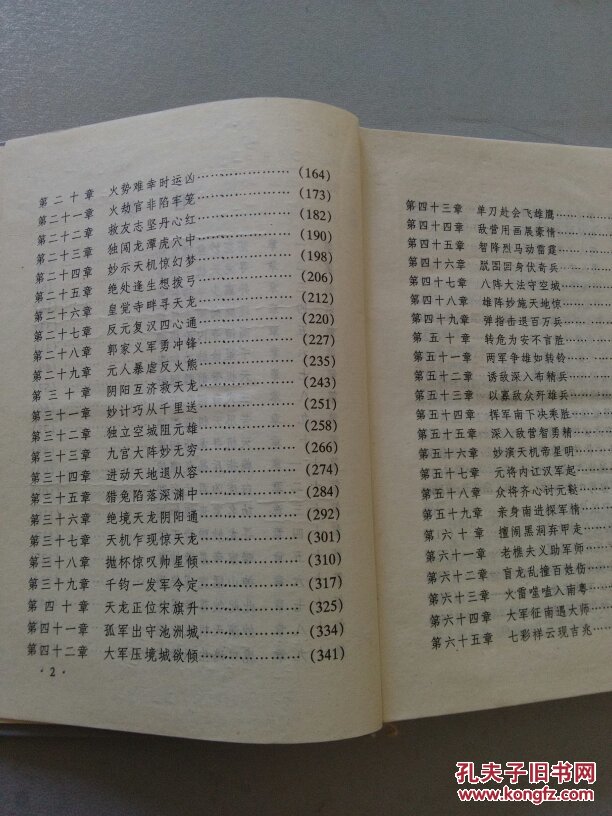 第二十章 火势难幸时运凶……………(164)
第二十一章 火劫官非陷牢笼……………(173)
第二十二章 救友志坚丹心红……………(182)
第二十三章 独闯龙潭虎穴中……………(190)
第二十四章 妙示天机惊幻梦……………(198)
第二十五章 绝处逢生想拨弓……………(206)
第二十六章 皇觉寺畔寻天龙……………(212)
第二十七章 反元复汉四心通……………(220)
第二十八章 郭家义军勇冲锋……………(227)
第二十九章 元人暴虐反火熊……………(235)
第三十章 阴阳互济救天龙……………(243)
第三十一章 妙计巧从千里送……………(251)
第三十二章 独立空城阻元雄……………(258)
第三十三章 九宫大阵妙无穷……………(266)
第三十四章 进动天地退从容……………(274)
第三十五章 猎兔陷落深渊中……………(284)
第三十六章 绝境天龙阴阳通……………(292)
第三十七章 天机乍现惊天龙……………(301)
第三十八章 抛杯惊叹帅星倾……………(310)
第三十九章 千钧一发军令定……………(317)
第四十章 天龙正位宋旗升……………(325)
第四十一章 孤军出守池洲城……………(334)
第四十二章 大军压境城欲倾……………(341)
·2·
第四十三章 单刃赴会飞雄鹰……
第四十四章 敌营用画展豪情……
第四十五章 智降烈马动雷霆……
第四十六章 脱囹囝身伏奇兵……
第四十七章 八阵大法守空城……
第四十八章 雄阵妙施天地惊……
第四十九章 弹指击退百万兵……
第五十章 转危为安不言胜……
第五十一章 两军争雄如转铃……
第五十二章 诱敌深入布精兵……
第五十三章 以寡敌众歼雄兵……
第五十四章 挥军南下决乘胜……
第五十五章 深入敌营智勇精……
第五十六章 妙演天机帝星明……
第五十七章 元将内讧汉军起……
第五十八章 众将齐心讨元鞑……
第五十九章 亲身南进探军情……
第六十章 擅闹黑洞弃甲走……
第六十一章 老樵夫义助军师……
第六十二章 盲龙乱撞百姓伤……
第六十三章 火雷嗑嗑入南粤……
第六十四章 大军征南遇大师……
第六十五章 七彩祥云现吉兆……
孔夫子旧书网
www.kongfz.com